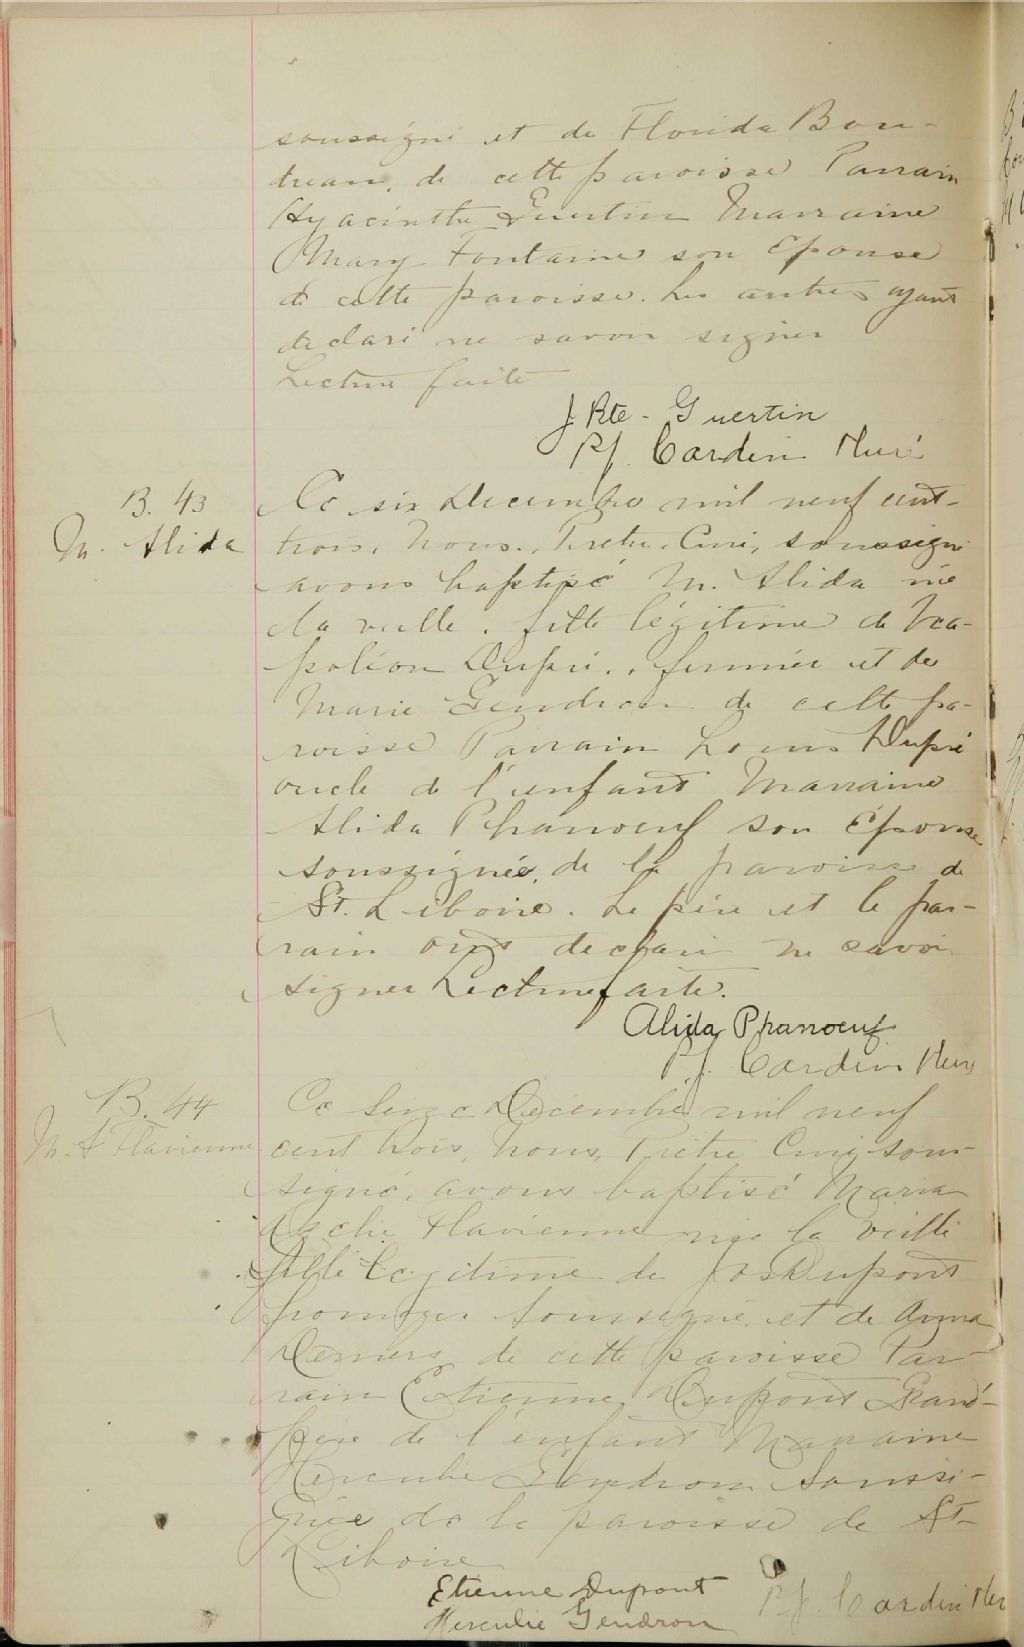 soussigné et de Florida Bou-
dreau, de cette paroisse Parrain
Hyacinthe Guertin Marraine
Mary Fontaine son Epouse
de cette paroisse. Les autres ayant
declaré ne savoir signer
Lecture faite
J. Bte - Guertin
P.J. Cardin Ptre Curé
B. 43
M. Alida
Ce six Decembre mil neuf cent-
trois, Nous, Pretre, Curé, soussigné
avons baptisé M. Alida née
la veille, fille légitime de Na-
poléon Dupré, fermier et de
Marie Gendron de cette pa-
roisse Parrain Louis Dupré
oncle de l'enfant Marraine
Alida Phanoeuf son Épouse
soussignée, de la paroisse de
St. Liboire. Le père et le par-
rain ont declaré ne savoir
signer Lecture faite.
Alida Phanoeuf
P.J. Cardin Ptre Curé
B. 44
M. A Flavienne
Ce Decembre mil neuf
cent trois, Nous, Prètre Curé sous-
signé, avons baptisé Maria
Flavienne née la veille
fille légitime de Jos Dupont
fromager soussigné, et de Anna
Demers de cette paroisse Par-
rain Etienne Dupont Grand-
père de l'enfant Marraine
Herculie Gendron soussi-
gnée de la paroisse de St-
Liboire
Etienne Dupont P.J. Cardin Ptre
Herculie Gendron